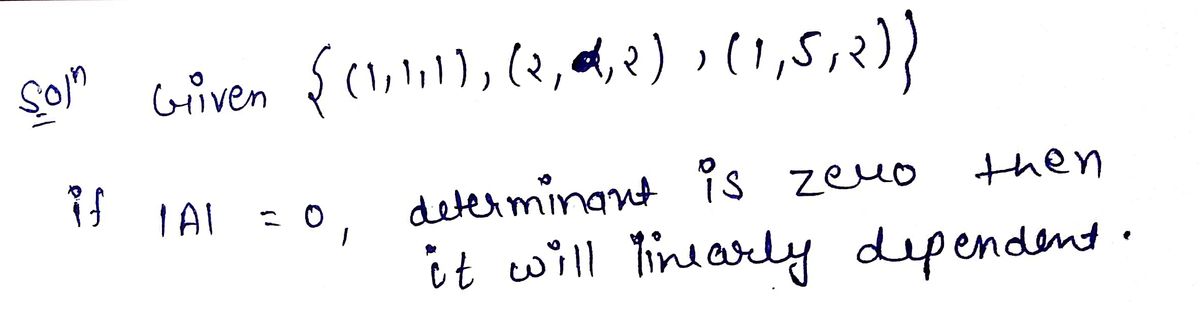 Solⁿ Given {(1,1,1), (2,α,2), (1,5,2)}
if |A| = 0, determinant is zero then
it will linearly dependent.